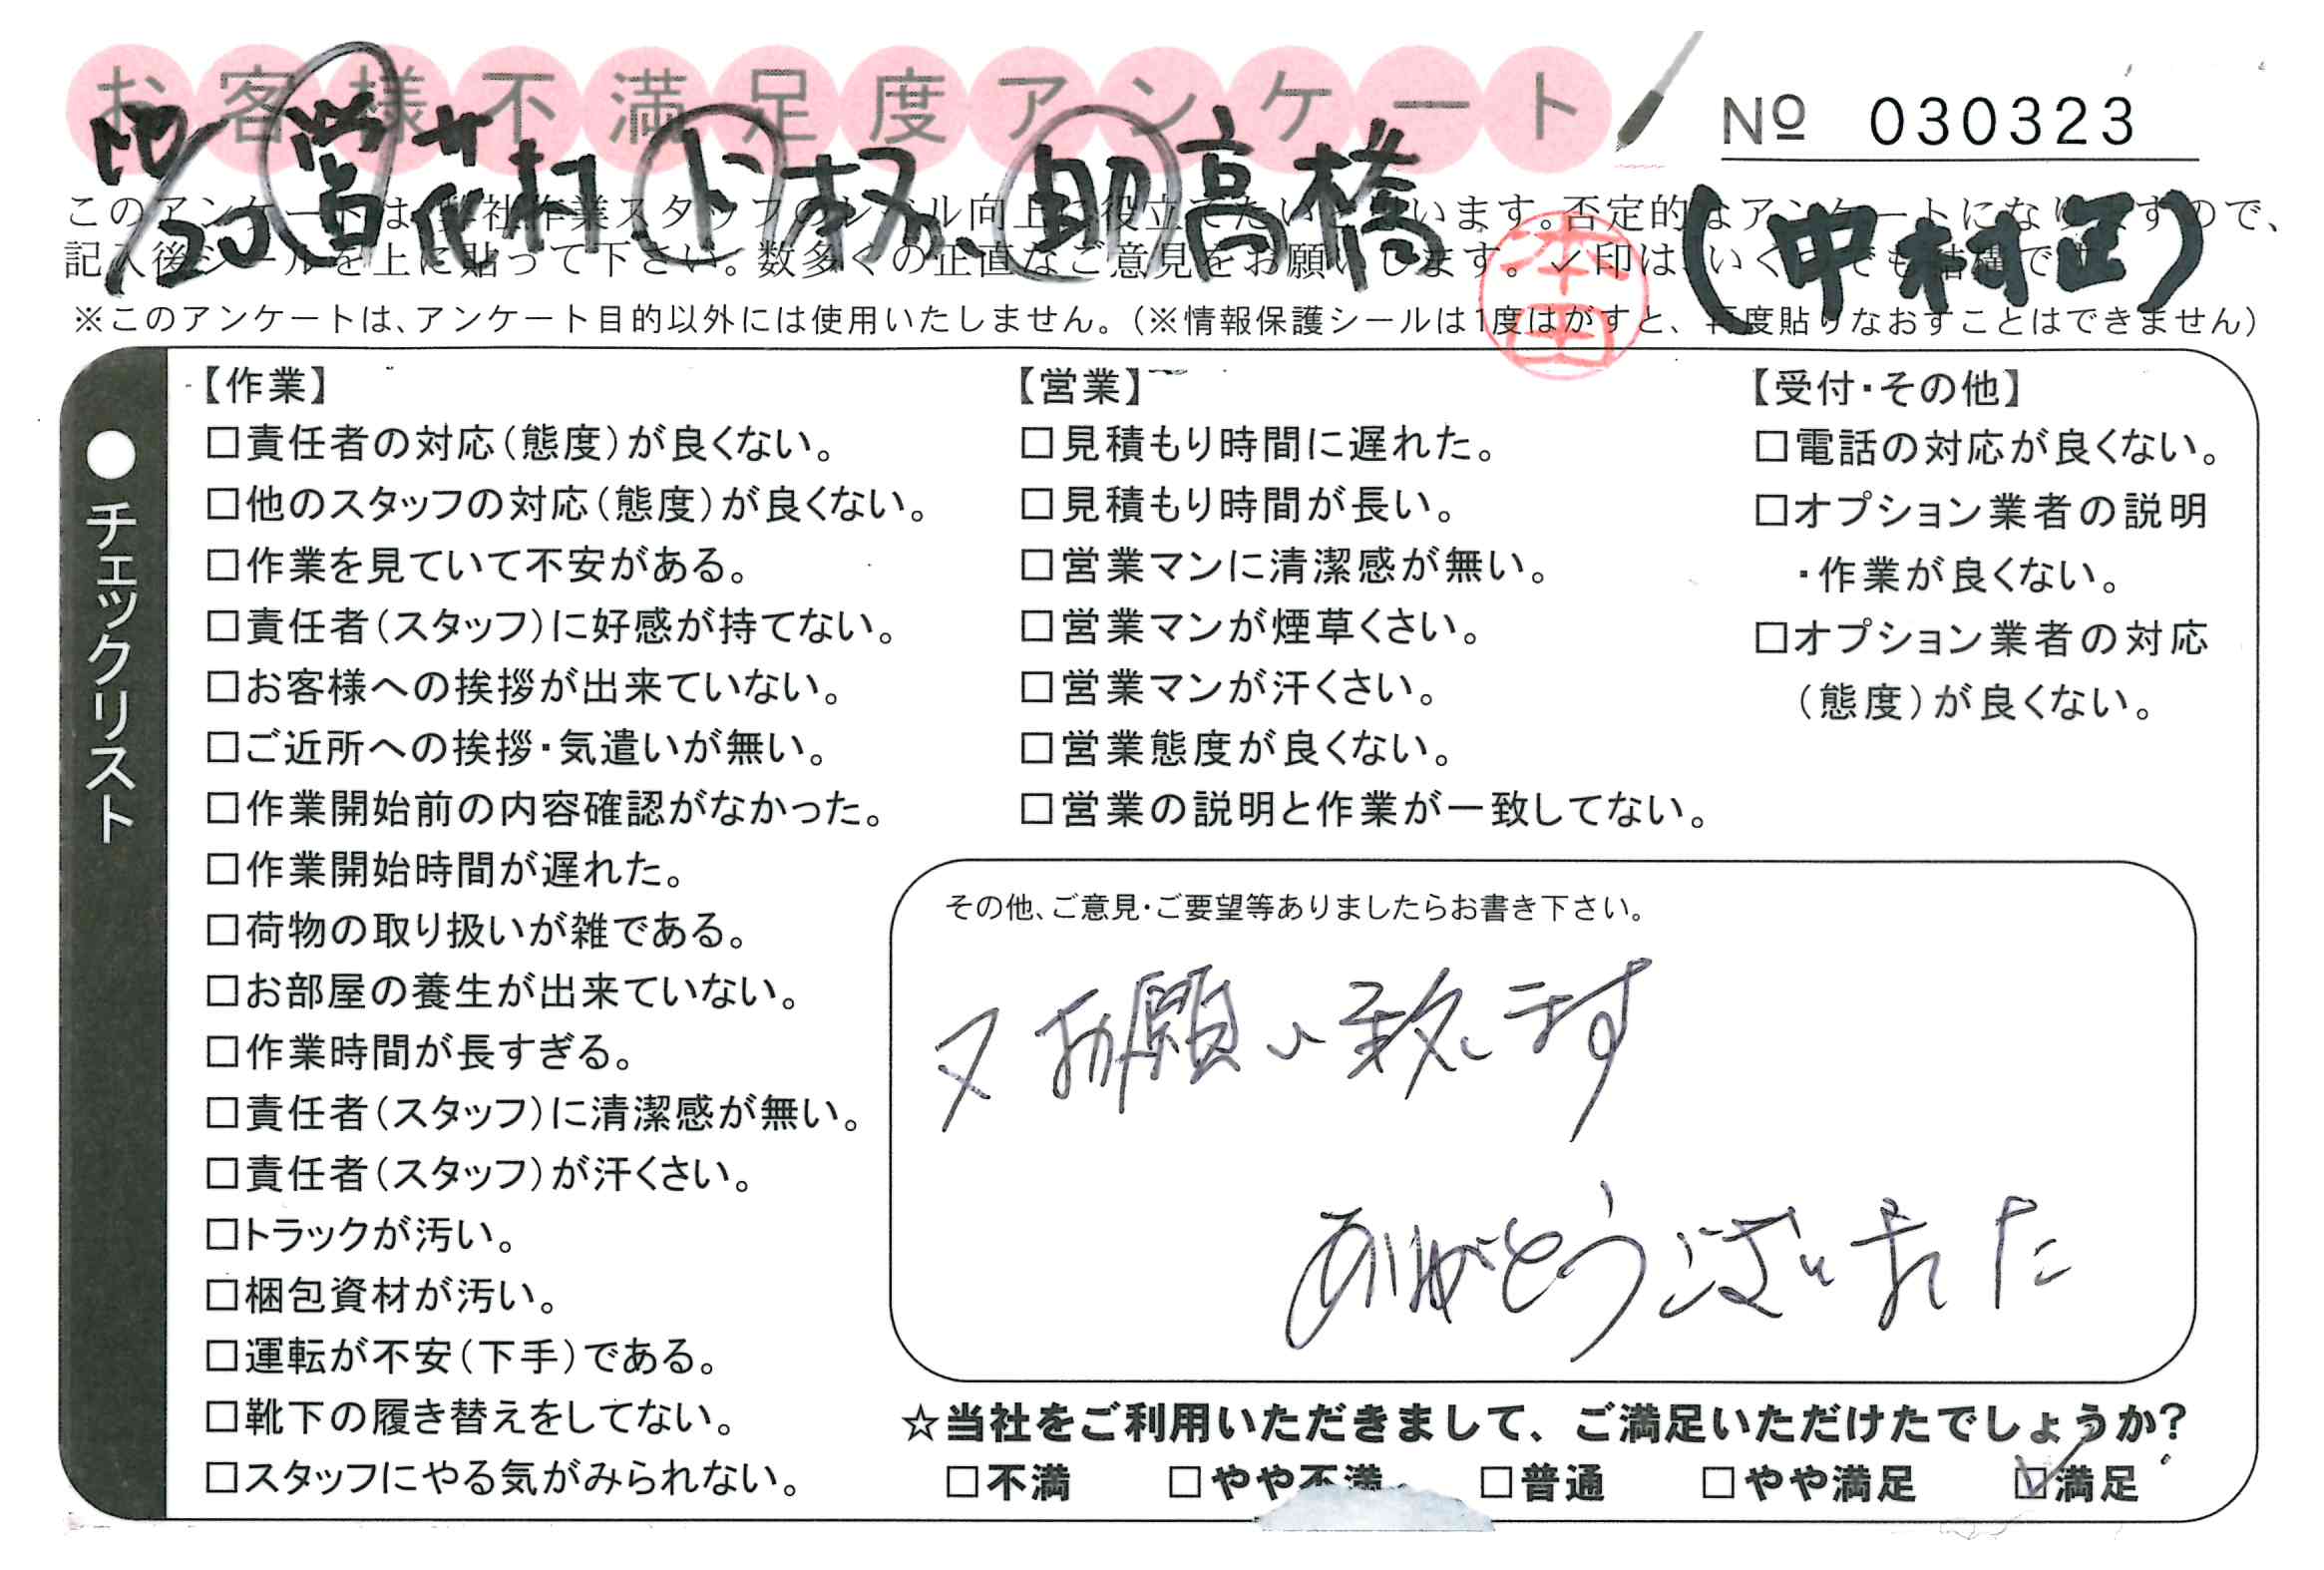 お客様不満足度アンケート
№ 030323
営 花村 ト 助 高橋
(中村区)
このアンケートは、弊社作業スタッフのレベル向上に役立てたいと思います。否定的なアンケートになりますので、
記入後シールを上に貼って下さい。数多くの正直なご意見をお願いします。✓印は、いくつでも結構です。
※このアンケートは、アンケート目的以外には使用いたしません。(※情報保護シールは1度はがすと、再度貼りなおすことはできません)
本田
●チェックリスト
【作業】
□責任者の対応(態度)が良くない。
□他のスタッフの対応(態度)が良くない。
□作業を見ていて不安がある。
□責任者(スタッフ)に好感が持てない。
□お客様への挨拶が出来ていない。
□ご近所への挨拶・気遣いが無い。
□作業開始前の内容確認がなかった。
□作業開始時間が遅れた。
□荷物の取り扱いが雑である。
□お部屋の養生が出来ていない。
□作業時間が長すぎる。
□責任者(スタッフ)に清潔感が無い。
□責任者(スタッフ)が汗くさい。
□トラックが汚い。
□梱包資材が汚い。
□運転が不安(下手)である。
□靴下の履き替えをしてない。
□スタッフにやる気がみられない。
【営業】
□見積もり時間に遅れた。
□見積もり時間が長い。
□営業マンに清潔感が無い。
□営業マンが煙草くさい。
□営業マンが汗くさい。
□営業態度が良くない。
□営業の説明と作業が一致してない。
【受付・その他】
□電話の対応が良くない。
□オプション業者の説明
・作業が良くない。
□オプション業者の対応
(態度)が良くない。
その他、ご意見・ご要望等ありましたらお書き下さい。
又お願い致します
ありがとうございました
☆当社をご利用いただきまして、ご満足いただけたでしょうか?
□不満 □やや不満 □普通 □やや満足 ☑満足